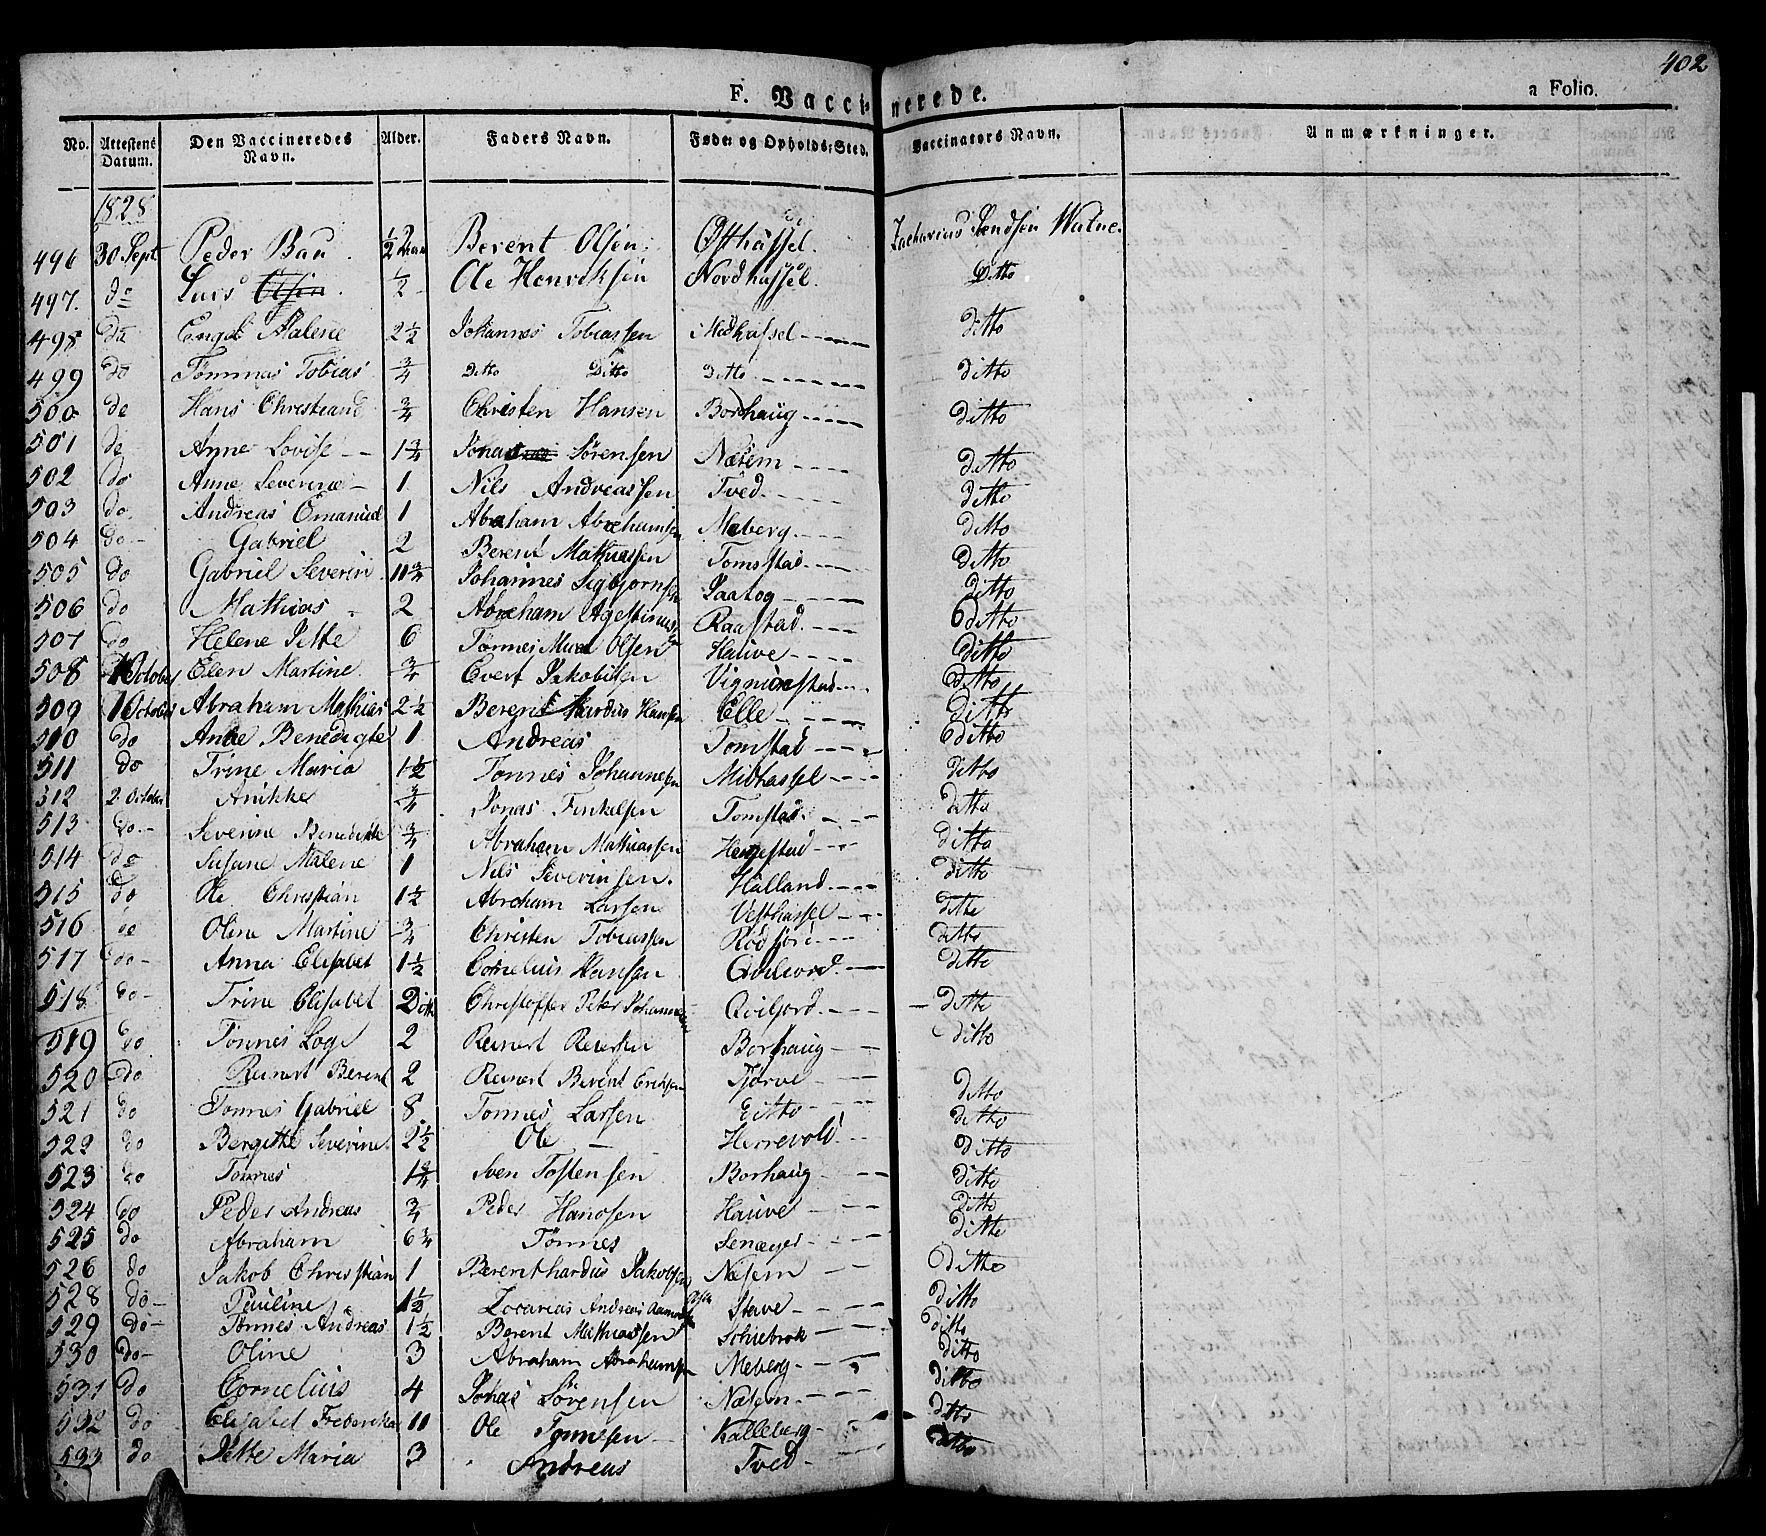 402
F. Vaccinerede. a Folio.
No. Attestens Datum. Den Vaccineredes Navn. Alder. Faders Navn. Føde- og Opholds-Sted. Vaccinators Navn. Anmærkninger.
1828
496 30 Sept Peder Bau ½ Berent Olsen Østhassel. Zacharias
497. do Lars Olsen ½ Ole Henriksen Nordhassel. Ditto
498 do Engel Malene 2½ Johannes Tobiassen Midhassel ditto
499 do Tommas Tobias ¾ Ditto Ditto ditto ditto
500 do Hans Christiand ¾ Christen Hansen Borhaug ditto
501 do Anne Lovise 1¾ Sørensen Næsem ditto
502 do Anne Severine 1 Nils Andreassen Tved ditto
503 do Andreas Emanuel 1 Abraham Abrahamsen Meberg ditto
504 do Gabriel 2 Berent Mathiassen Tomstad ditto
505 do Gabriel Severin Johannes Sigbjornsen ditto
506 do Mathias 2 Abraham Raastad ditto
507 do Helene Jette 6 Tønnes Olsen Hauve ditto
508 1 October Elen Martine ¾ Evert Jakobsen Vigmunstad ditto
509 1 October Abraham Mathias 2½ Berent Hansen Elle ditto
510 do Anne Benedigte 1 Andreas Tomstad ditto
511 do Trine Maria 1½ Tonnes Johannesen Midhassel ditto
512 2 October Anikke ¾ Jonas Finkelsen Tomstad ditto
513 do Severine Benedikte ¾ Abraham Mathiassen ditto
514 do Susane Malene 1 Nils Severinsen. Halland ditto
515 do Ole Christian 1½ Abraham Larsen Vesthassel ditto
516 do Oline Martine ¾ Christen Tobiassen ditto
517 do Anna Elisabet 1½ Cornelius Hansen ditto
518 do Trine Elisabet Ditto Christoffer Peter Qviljord ditto
519 do Tønnes Loge 2 Reinert Reiersen Borhaug ditto
520 do Reinert Berent 2 Reinert Berent Eriksen Tjørve ditto
521 do Tonnes Gabriel 8 Tonnes Larsen Ditto ditto
522 do Bergitte Severine 2½ Ole Herrevold ditto
523 do Tønnes Sven Tostensen Borhaug ditto
524 do Peder Andreas ¾ Peder Hansen Hauve ditto
525 do Abraham 6¾ Tønnes ditto
526 do Jakob Christian 1 Berenthardus Jakobsen Næsem ditto
528 do Pauline 1½ Zacarias Andreas Stave ditto
529 do Tønnes Andreas 1½ Berent Mathiassen ditto
530 do Oline 3 Abraham Abrahamsen Meberg ditto
531 do Cornelius 4 Jonas Sørensen Næsem ditto
532 do Elisabet Frederika 11 Ole Tønnesen Kalleberg ditto
533 do Jette Maria 3 Andreas Tved ditto